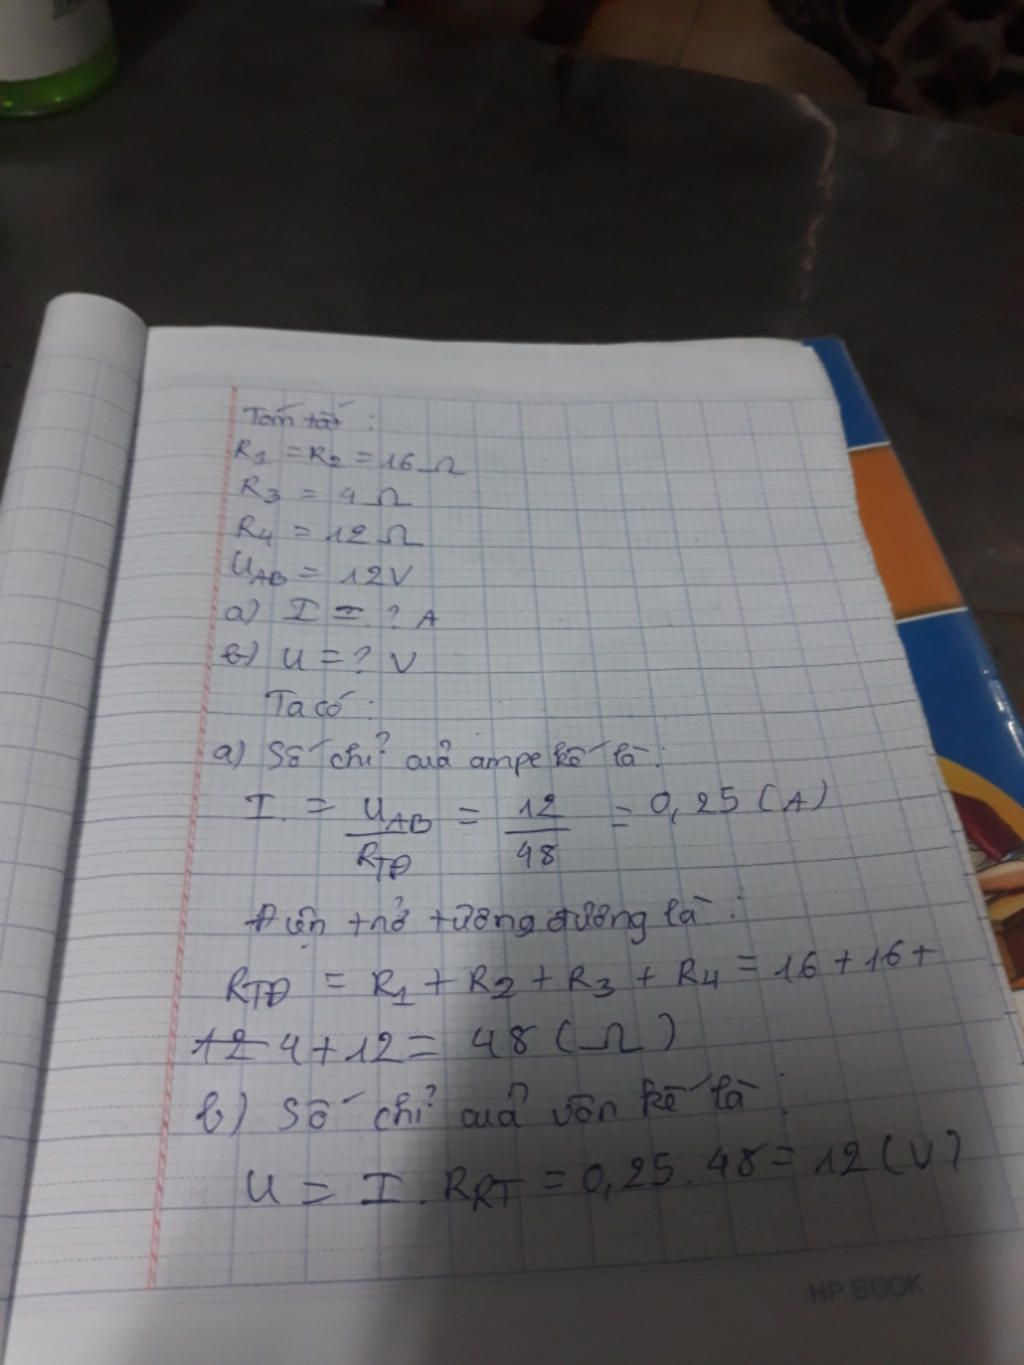 Tóm tắt:
R1 = R2 = 16 Ω
R3 = 4 Ω
R4 = 12 Ω
UAB = 12V
a) I = ? A
b) U = ? V
Ta có:
a) Số chỉ của ampe kế là:
I = UAB / RTĐ = 12 / 48 = 0,25 (A)
Điện trở tương đương là:
RTĐ = R1 + R2 + R3 + R4 = 16 + 16 +
12 4 + 12 = 48 (Ω)
b) Số chỉ của vôn kế là:
U = I . RRT = 0,25 . 48 = 12 (V)
HP BOOK